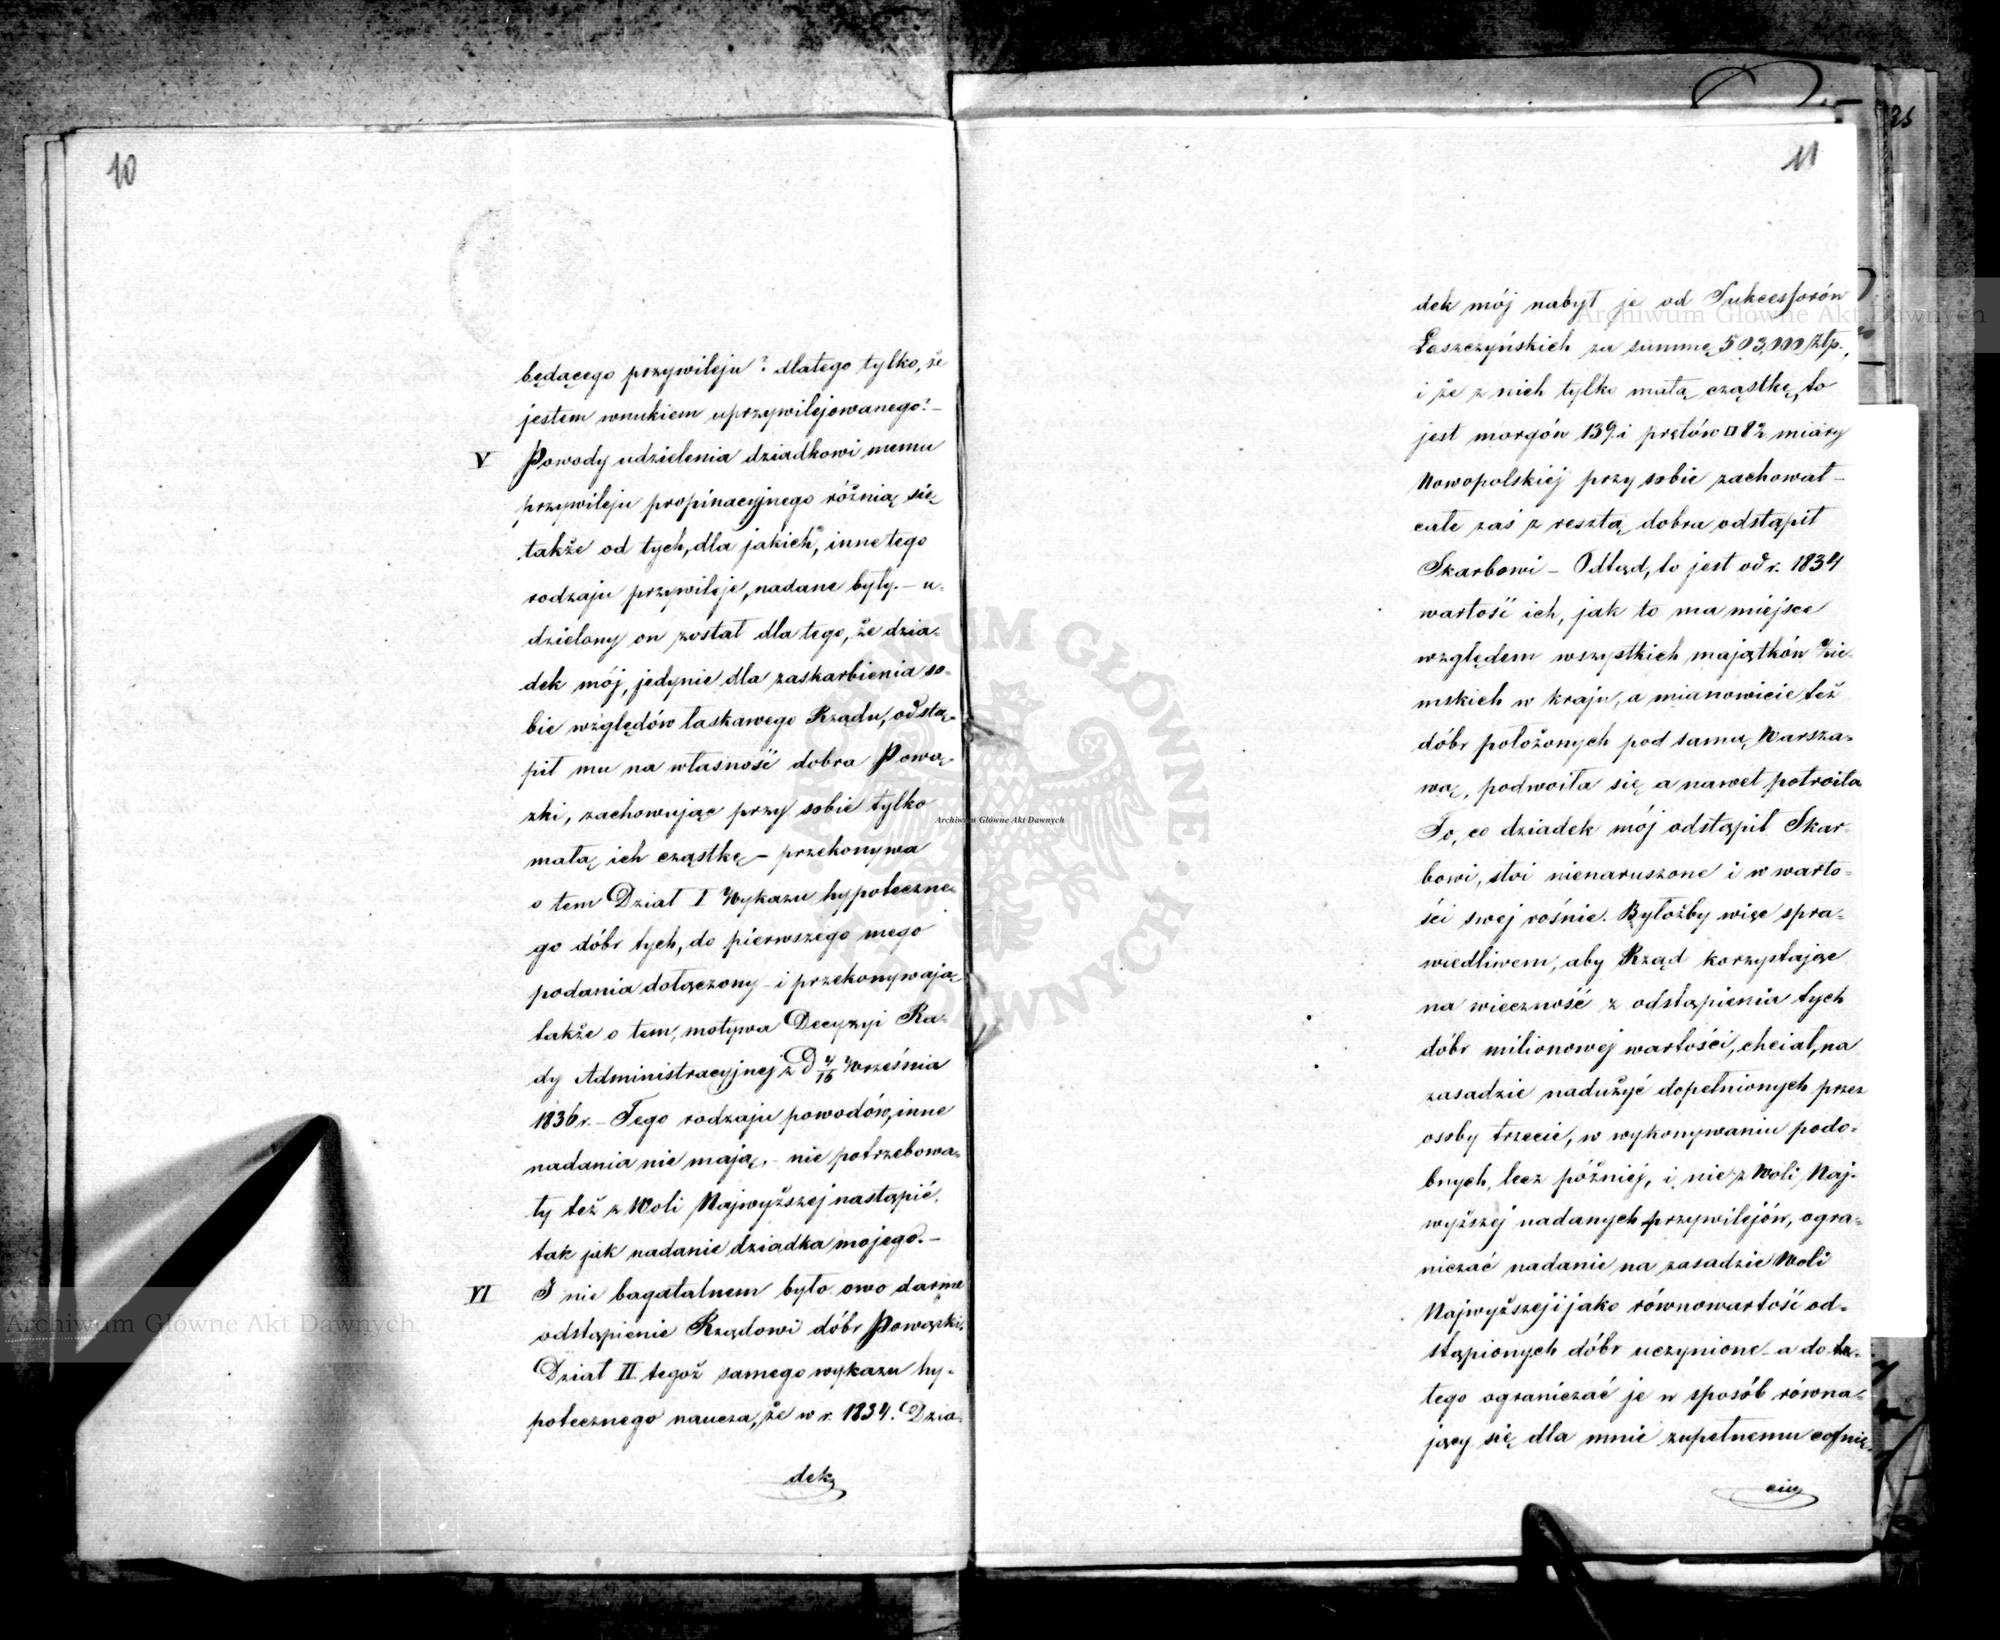 10
będącego przywileju? dlatego tylko, że
jestem wnukiem uprzywilejowanego? –
V Powody udzielenia dziadkowi memu
przywileju propinacyjnego różnią się
także od tych, dla jakich, inne tego
rodzaju przywileje, nadane były. – u-
dzielony on został dla tego, że dzia-
dek mój, jedynie dla zaskarbienia so-
bie względów łaskawego Rządu, odstą-
pił mu na własność dobra Pową-
zki, zachowując przy sobie tylko
małą ich cząstkę – przekonywa
o tem Dział I Wykazu hypoteczne-
go dóbr tych, do pierwszego mego
podania dołączony – i przekonywają
także o tem, motywa Decyzyi Ra-
dy Administracyjnej z D 4/16 Września
1836 r. – Tego rodzaju powodów, inne
nadania nie mają, – nie potrzebowa-
ły też z Woli Najwyższej nastąpić,
tak jak nadanie dziadka mojego. –
VI I nie bagatalnem było owo darme
odstąpienie Rządowi dóbr Powązki.
Dział II tegoż samego wykazu hy-
potecznego naucza, że w r. 1834. Dzia-
dek
11
35
dek mój nabył je od Sukcessorów
Łaszczyńskich za summę 503,000 złp.,
i że z nich tylko małą cząstkę, to
jest morgów 139 i prętów □ 82 miary
Nowopolskiej przy sobie zachował –
całe zaś z resztą dobra odstąpił
Skarbowi – Odtąd, to jest od r. 1834
wartość ich, jak to ma miejsce
względem wszystkich majątków Zie-
mskich w kraju, a mianowicie też
dóbr położonych pod samą Warsza-
wą, podwoiła się a nawet potroiła
To, co dziadek mój odstąpił Skar-
bowi, stoi nienaruszone i w warto-
ści swej rośnie. Byłożby więc spra-
wiedliwem, aby Rząd korzystając
na wieczność z odstąpienia tych
dóbr milionowej wartości, chciał, na
zasadzie nadużyć dopełnionych przez
osoby trzecie, w wykonywaniu podo-
bnych, lecz później, i nie z Woli Naj-
wyższej nadanych przywilejów, ogra-
niczać nadanie na zasadzie Woli
Najwyższej i jako równowartość od-
stąpionych dóbr uczynione – a do te-
tego ograniczać je w sposób równa-
jący się dla mnie zupełnemu cofnię-
ciu
Archiwum Główne Akt Dawnych
Archiwum Główne Akt Dawnych
Archiwum Główne Akt Dawnych
ARCHIWUM GŁÓWNE AKT DAWNYCH